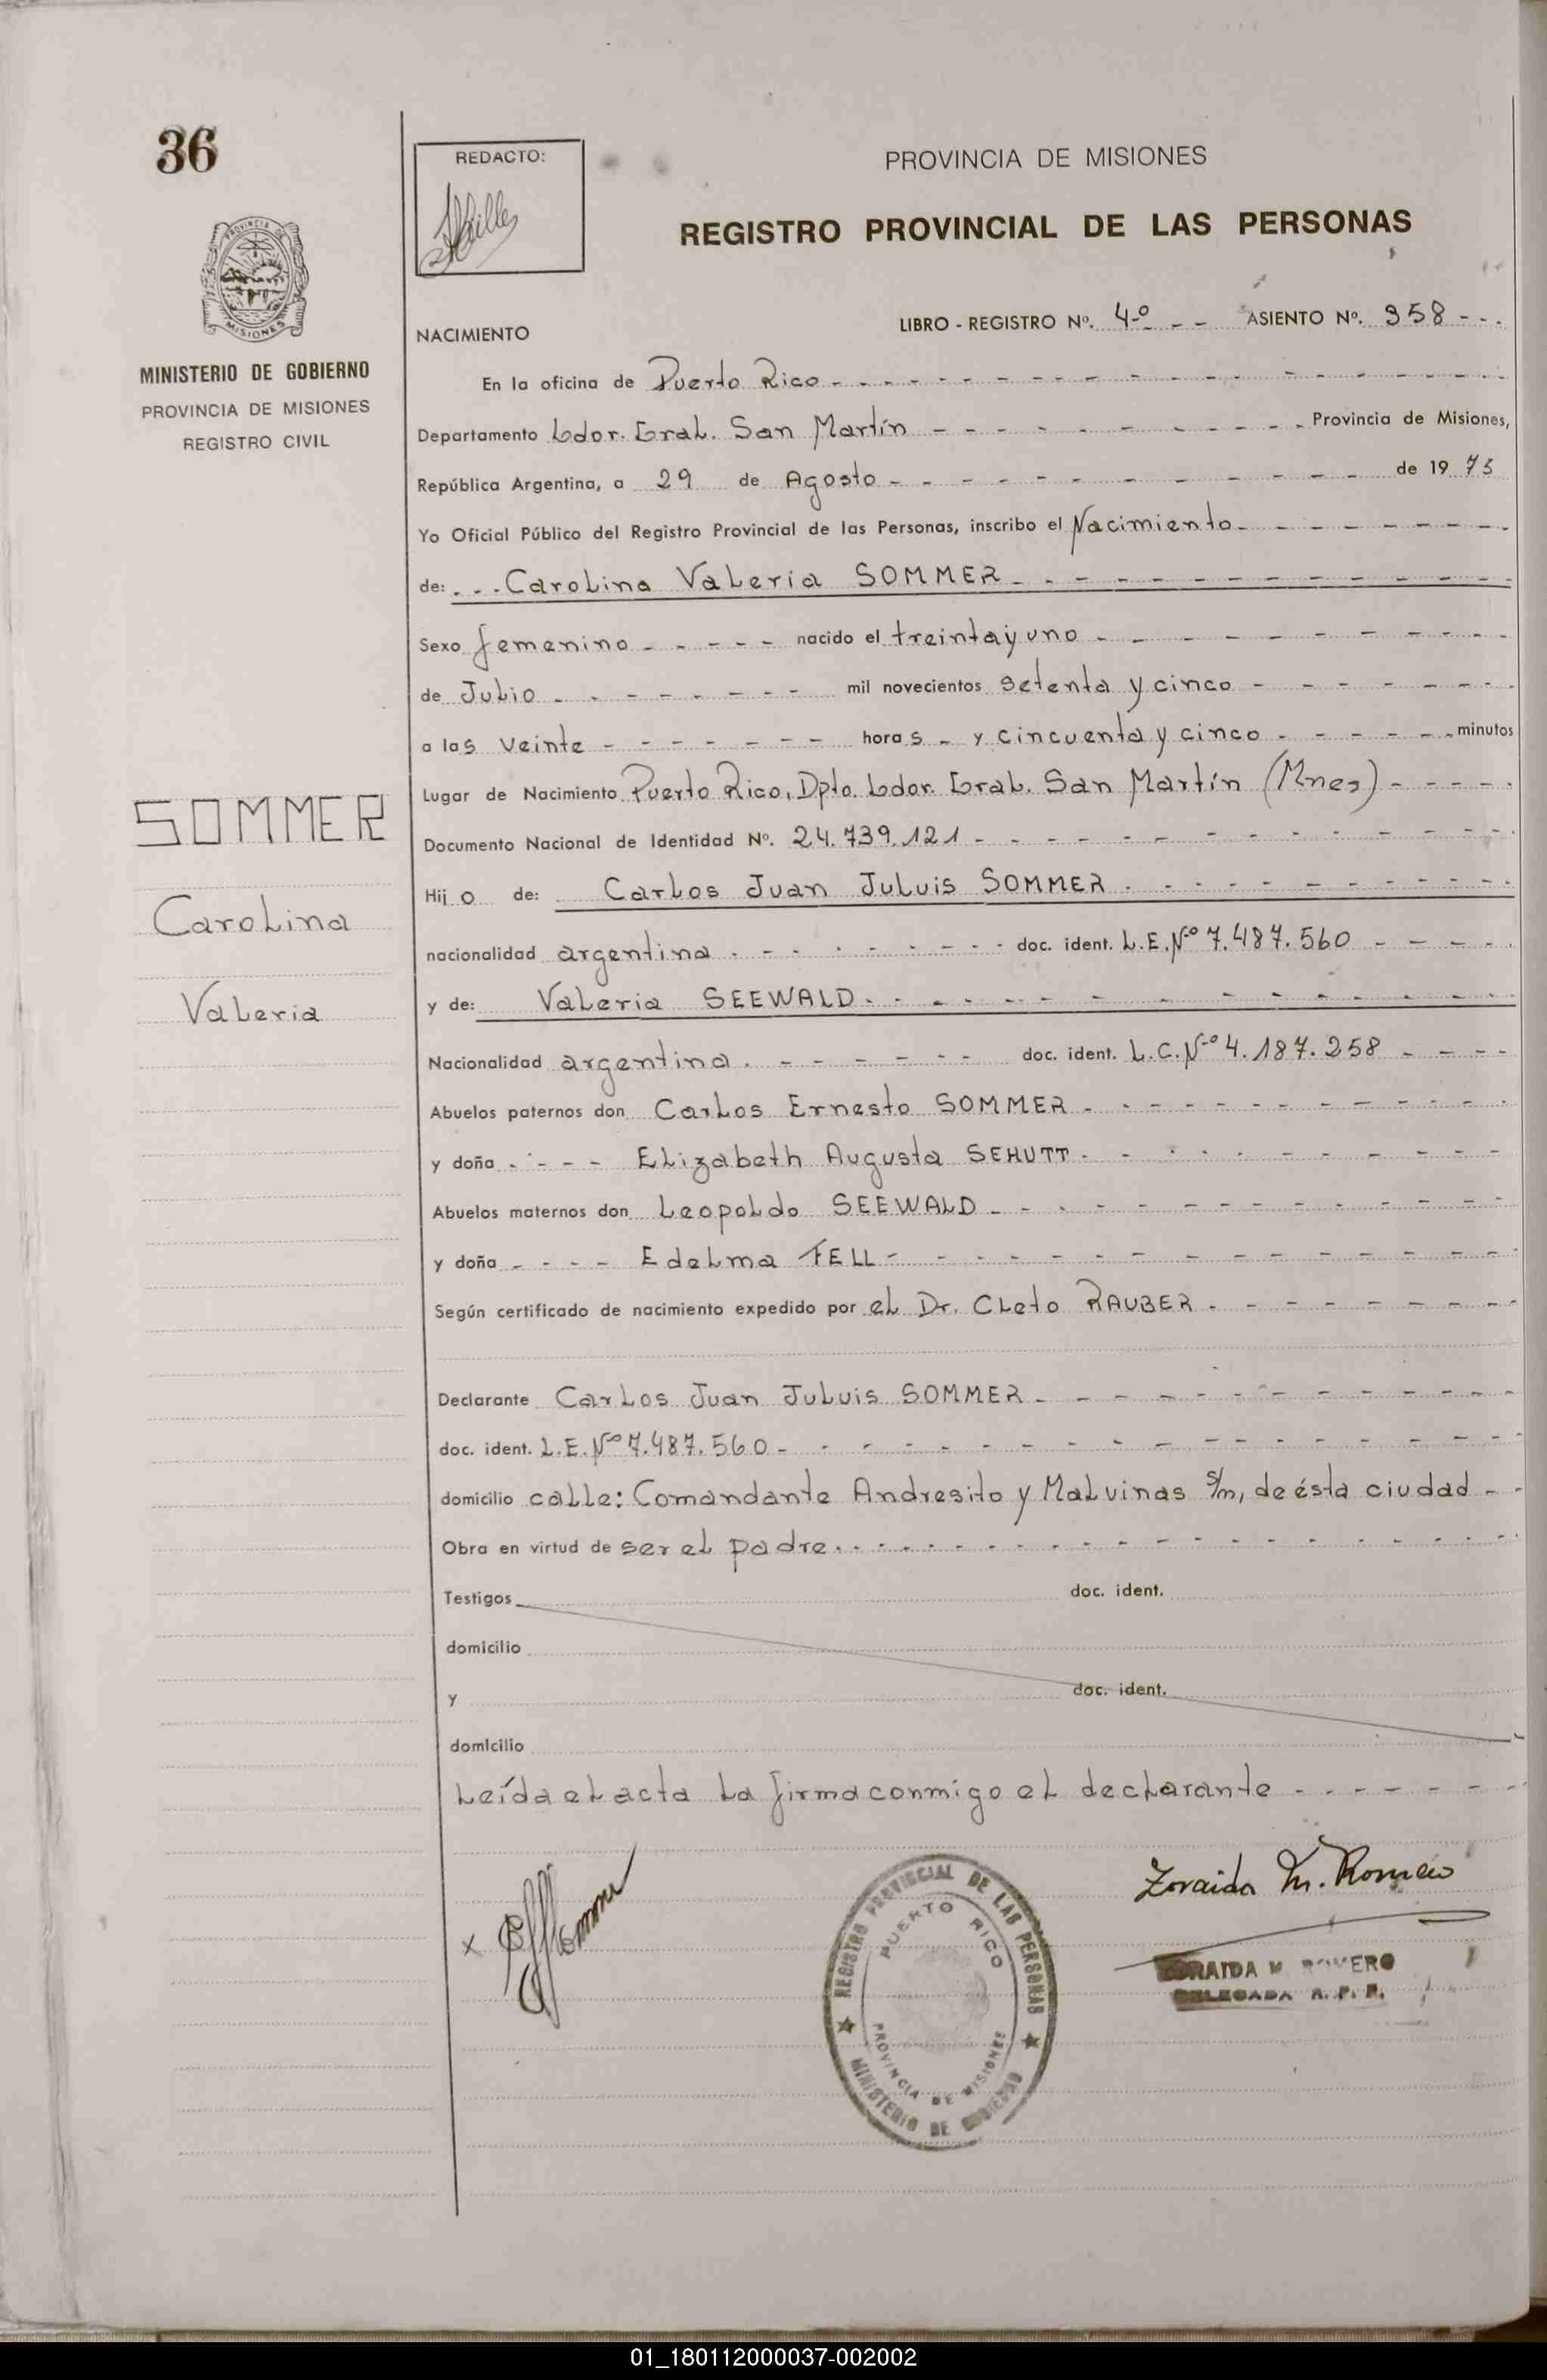 36
REDACTO:
PROVINCIA DE MISIONES
REGISTRO PROVINCIAL DE LAS PERSONAS
MISIONES
MINISTERIO DE GOBIERNO
PROVINCIA DE MISIONES
REGISTRO CIVIL
LIBRO - REGISTRO Nº. 4º - - ASIENTO Nº. 358 - - .
NACIMIENTO
En la oficina de Puerto Rico
Departamento Ldor. Gral. San Martín Provincia de Misiones,
República Argentina, a 29 de Agosto de 19 75
Yo Oficial Público del Registro Provincial de las Personas, inscribo el Nacimiento
de: Carolina Valeria SOMMER
Sexo femenino nacido el treinta y uno
de Julio mil novecientos setenta y cinco
a las veinte horas y cincuenta y cinco minutos
Lugar de Nacimiento Puerto Rico, Dpto. Ldor. Gral. San Martín (Mnes)
Documento Nacional de Identidad Nº. 24.739.121
Hijo de: Carlos Juan Juluis SOMMER
nacionalidad argentina doc. ident. L.E.Nº 7.487.560
y de: Valeria SEEWALD
Nacionalidad argentina doc. ident. L.C.Nº 4.187.258
Abuelos paternos don Carlos Ernesto SOMMER
y doña Elizabeth Augusta SEHUTT
Abuelos maternos don Leopoldo SEEWALD
y doña Edelma FELL
Según certificado de nacimiento expedido por el Dr. Cleto RAUBER
Declarante Carlos Juan Juluis SOMMER
doc. ident. L.E.Nº 7.487.560
domicilio calle: Comandante Andresito y Malvinas s/n, de ésta ciudad
Obra en virtud de ser el padre
Testigos doc. ident.
domicilio
y doc. ident.
domicilio
Leída el acta la firma conmigo el declarante
SOMMER
Carolina
Valeria
x
REGISTRO PROVINCIAL DE LAS PERSONAS
PUERTO RICO
PROVINCIA DE MISIONES
MINISTERIO DE GOBIERNO
Zoraida M. Romero
ZORAIDA M. ROMERO
DELEGADA R. P. P.
01_180112000037-002002